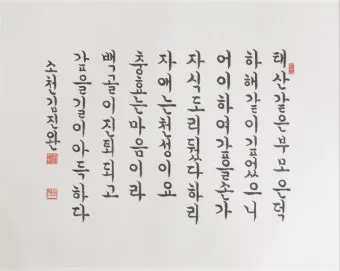 태산같은부모은덕
하해같이깊었으니
어이하여갚을손가
자식도리됐다하리
자애는천성이요
충효는마음이라
백골이진퇴되고
갚을길이아득하다
소천김진완